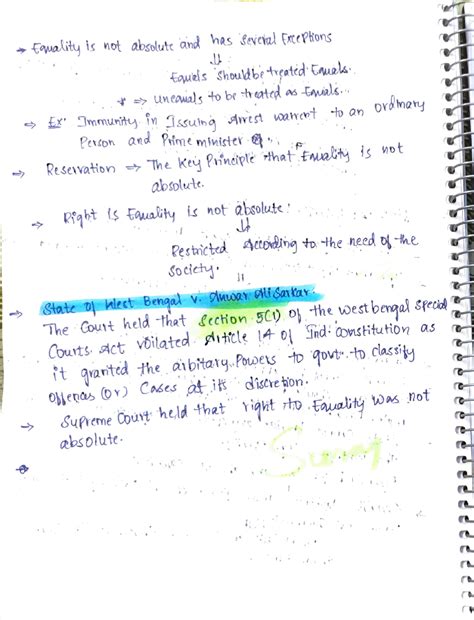 → Equality is not absolute and has several Exceptions
⇓
Equals should be treated Equals.
* ⇒ unequals to be treated as Equals.
→ Ex: Immunity in Issuing Arrest warrent to an ordinary
Person and Prime minister
→ Reservation ⇒ The Key Principle that Equality is not
absolute.
→ Right is Equality is not absolute:
⇓
Restricted According to the need of the
society.
→ State of West Bengal v. Anwar Ali Sarkar.
The Court held that Section 5(1) of the west bengal special
Courts Act voilated Article 14 of Ind. Constitution as
it granted the arbitary Powers to govt to classify
offenas (or) Cases at its discretion.
→ Supreme Court held that right to Equality was not
absolute.